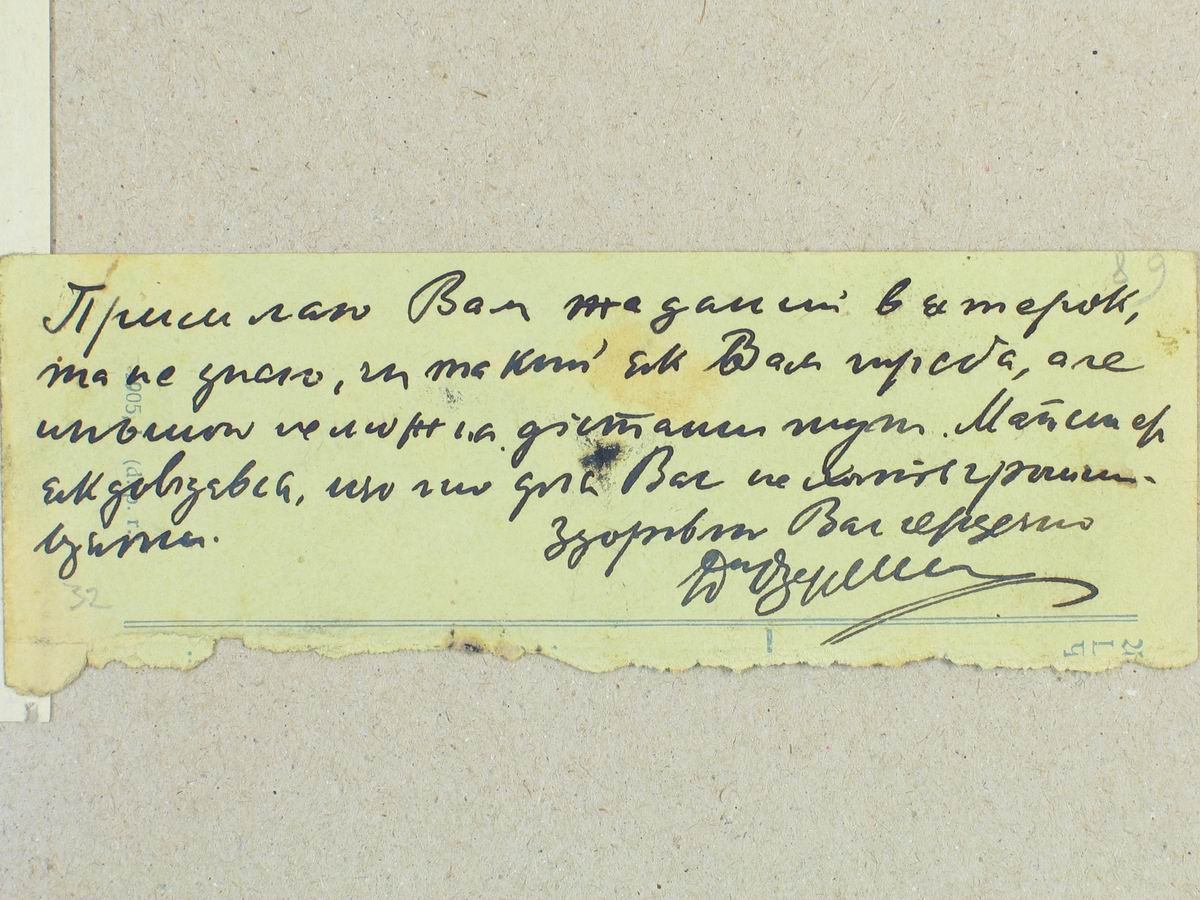 89
Присилаю Вам жаданий вятерок,
та не знаю, чи такий як Вам треба, але
иньшого не можна дістати тут. Майстер
як довідався, що то для Вас не хотів грошей
взяти.
Здоровлю Вас сердечно
32
905